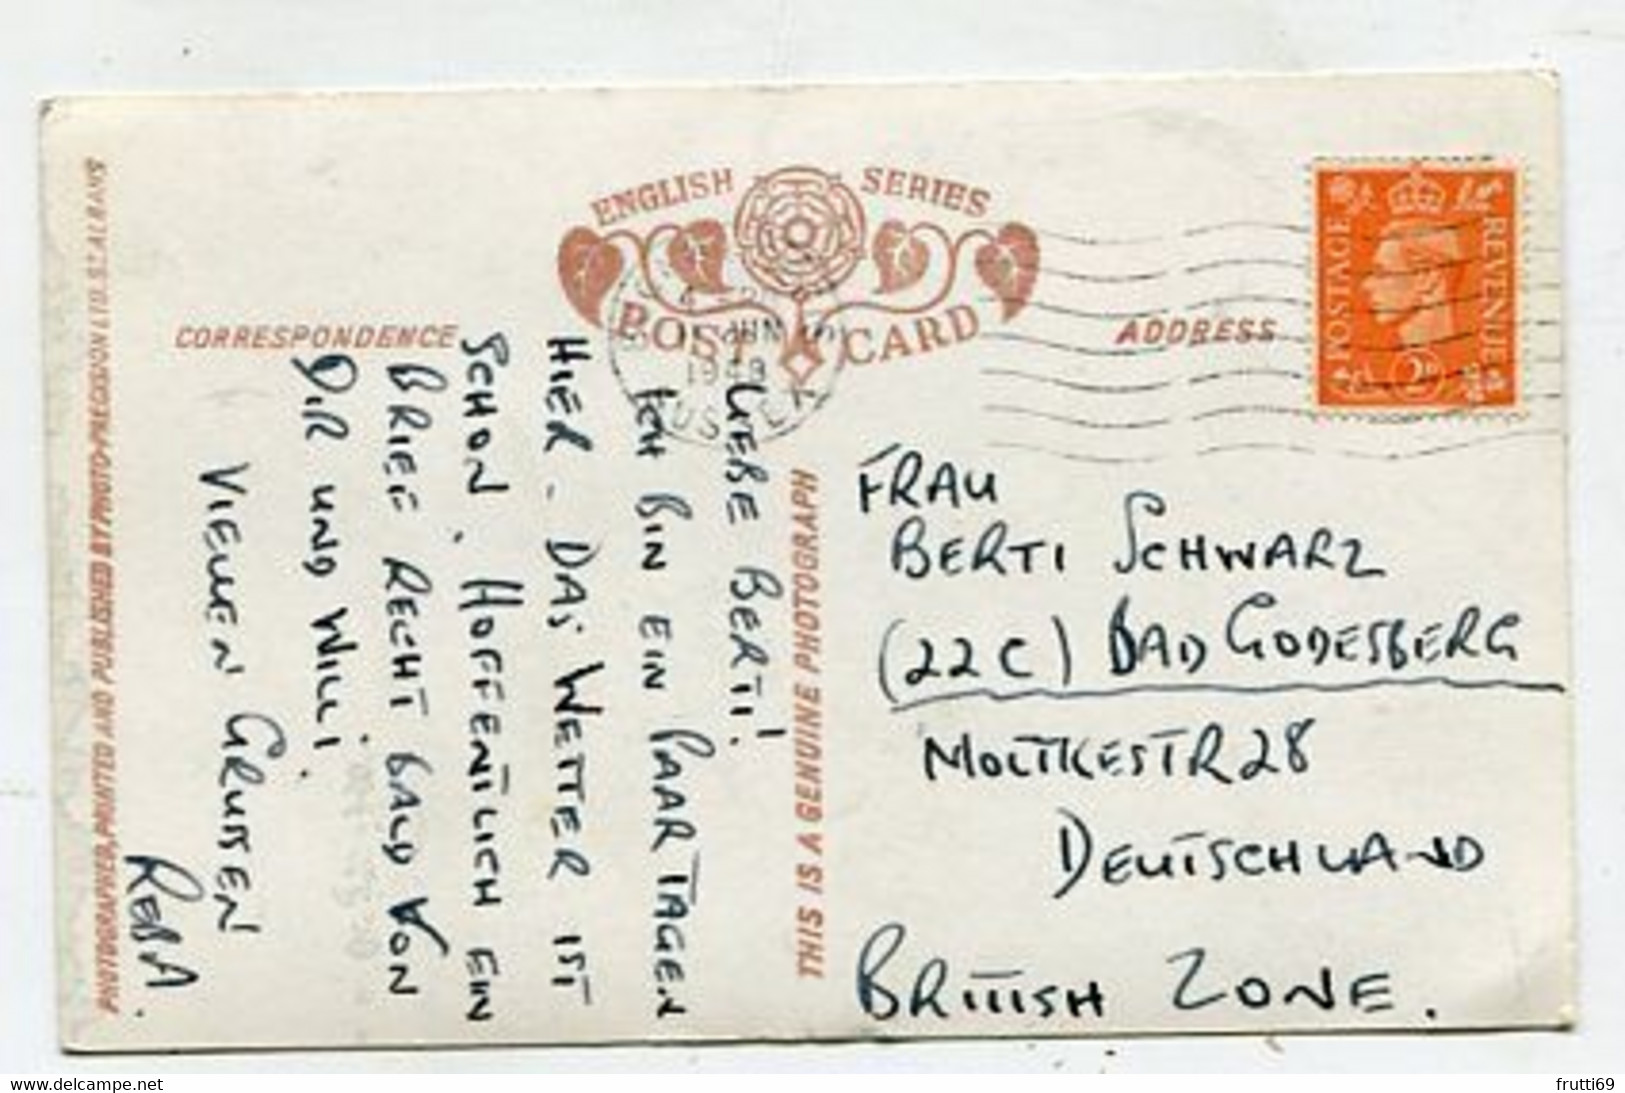 PHOTOGRAPHED, PRINTED AND PUBLISHED BY PHOTO-PRECISION LTD. ST. ALBANS
ENGLISH SERIES
POST CARD
CORRESPONDENCE
ADDRESS
POSTAGE
REVENUE
JUN
1949
LIEBE BERTI!
ICH BIN EIN PAAR TAGEN
HIER. DAS WETTER IST
SCHON. HOFFENTLICH EIN
BRIEF RECHT BALD VON
DIR UND WILLI.
VIELEN GRUSSEN
REBA.
THIS IS A GENUINE PHOTOGRAPH
FRAU
BERTI SCHWARZ
(22C) BAD GODESBERG
MOLTKESTR 28
DEUTSCHLAND
BRITISH ZONE.
frutti69